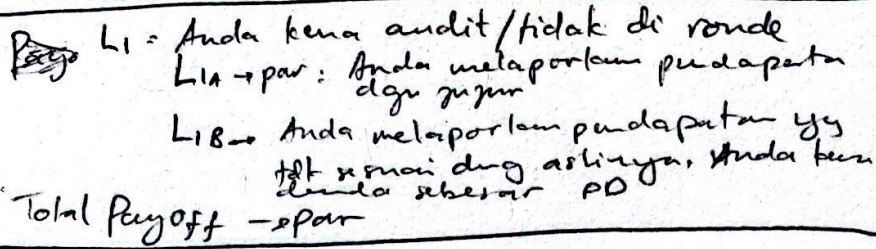 L1 = Anda kena audit/tidak di ronde
L1A → par : Anda melaporkan pendapata
dgn jujur
L1B → Anda melaporkan pendapatan yg
tdk sesuai dng aslinya. Anda kena
denda sebesar PD
Total Payoff → par